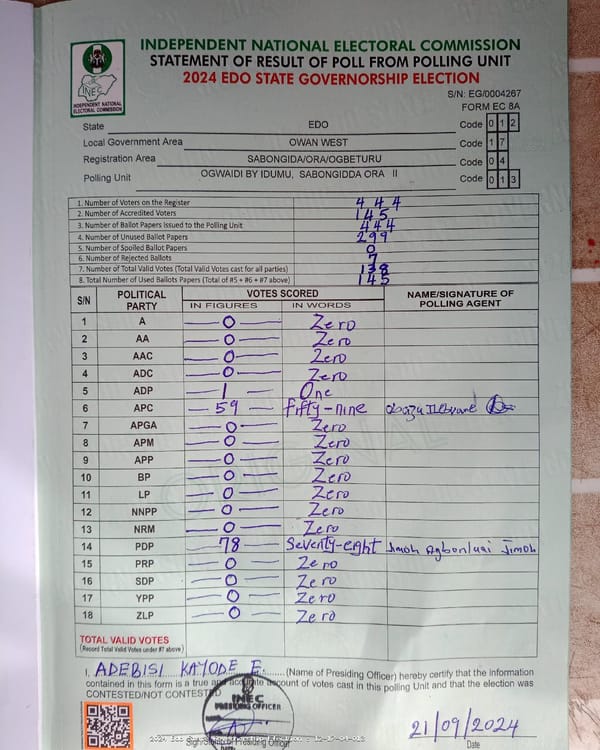 INDEPENDENT NATIONAL ELECTORAL COMMISSION
STATEMENT OF RESULT OF POLL FROM POLLING UNIT
2024 EDO STATE GOVERNORSHIP ELECTION
INEC
INDEPENDENT NATIONAL
ELECTORAL COMMISSION
S/N: EG/0004267
FORM EC 8A
State EDO Code 0 1 2
Local Government Area OWAN WEST Code 1 7
Registration Area SABONGIDA/ORA/OGBETURU Code 0 4
Polling Unit OGWAIDI BY IDUMU, SABONGIDDA ORA II Code 0 1 3
1. Number of Voters on the Register 444
2. Number of Accredited Voters 145
3. Number of Ballot Papers Issued to the Polling Unit 444
4. Number of Unused Ballot Papers 299
5. Number of Spoiled Ballot Papers 0
6. Number of Rejected Ballots 7
7. Number of Total Valid Votes (Total Valid Votes cast for all parties) 138
8. Total Number of Used Ballots Papers (Total of #5 + #6 + #7 above) 145
S/N POLITICAL PARTY VOTES SCORED NAME/SIGNATURE OF POLLING AGENT
IN FIGURES IN WORDS
1 A 0 Zero
2 AA 0 Zero
3 AAC 0 Zero
4 ADC 0 Zero
5 ADP 1 One
6 APC 59 Fifty-nine
7 APGA 0 Zero
8 APM 0 Zero
9 APP 0 Zero
10 BP 0 Zero
11 LP 0 Zero
12 NNPP 0 Zero
13 NRM 0 Zero
14 PDP 78 Seventy-eight Jimoh Jimoh
15 PRP 0 Zero
16 SDP 0 Zero
17 YPP 0 Zero
18 ZLP 0 Zero
TOTAL VALID VOTES
(Record Total Valid Votes under #7 above)
I, ADEBISI KAYODE E. (Name of Presiding Officer) hereby certify that the information
contained in this form is a true and accurate account of votes cast in this polling Unit and that the election was
CONTESTED/NOT CONTESTED
INEC
PRESIDING OFFICER
Sign/Stamp of Presiding Officer
21/09/2024
Date